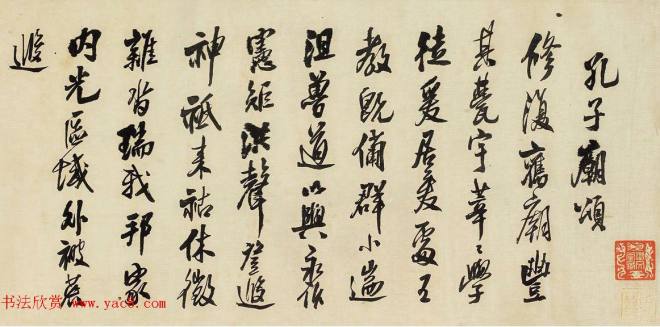 孔子廟頌
修復舊廟豐
其甍宇莘〻學
徒爰居爰處王
教既備群小遄
沮魯道以興永作
憲矩洪聲登遐
神祇來祜休徵
雜沓瑞我邦家
內光區域外被荒
遐
书法欣赏 www.yac8.com